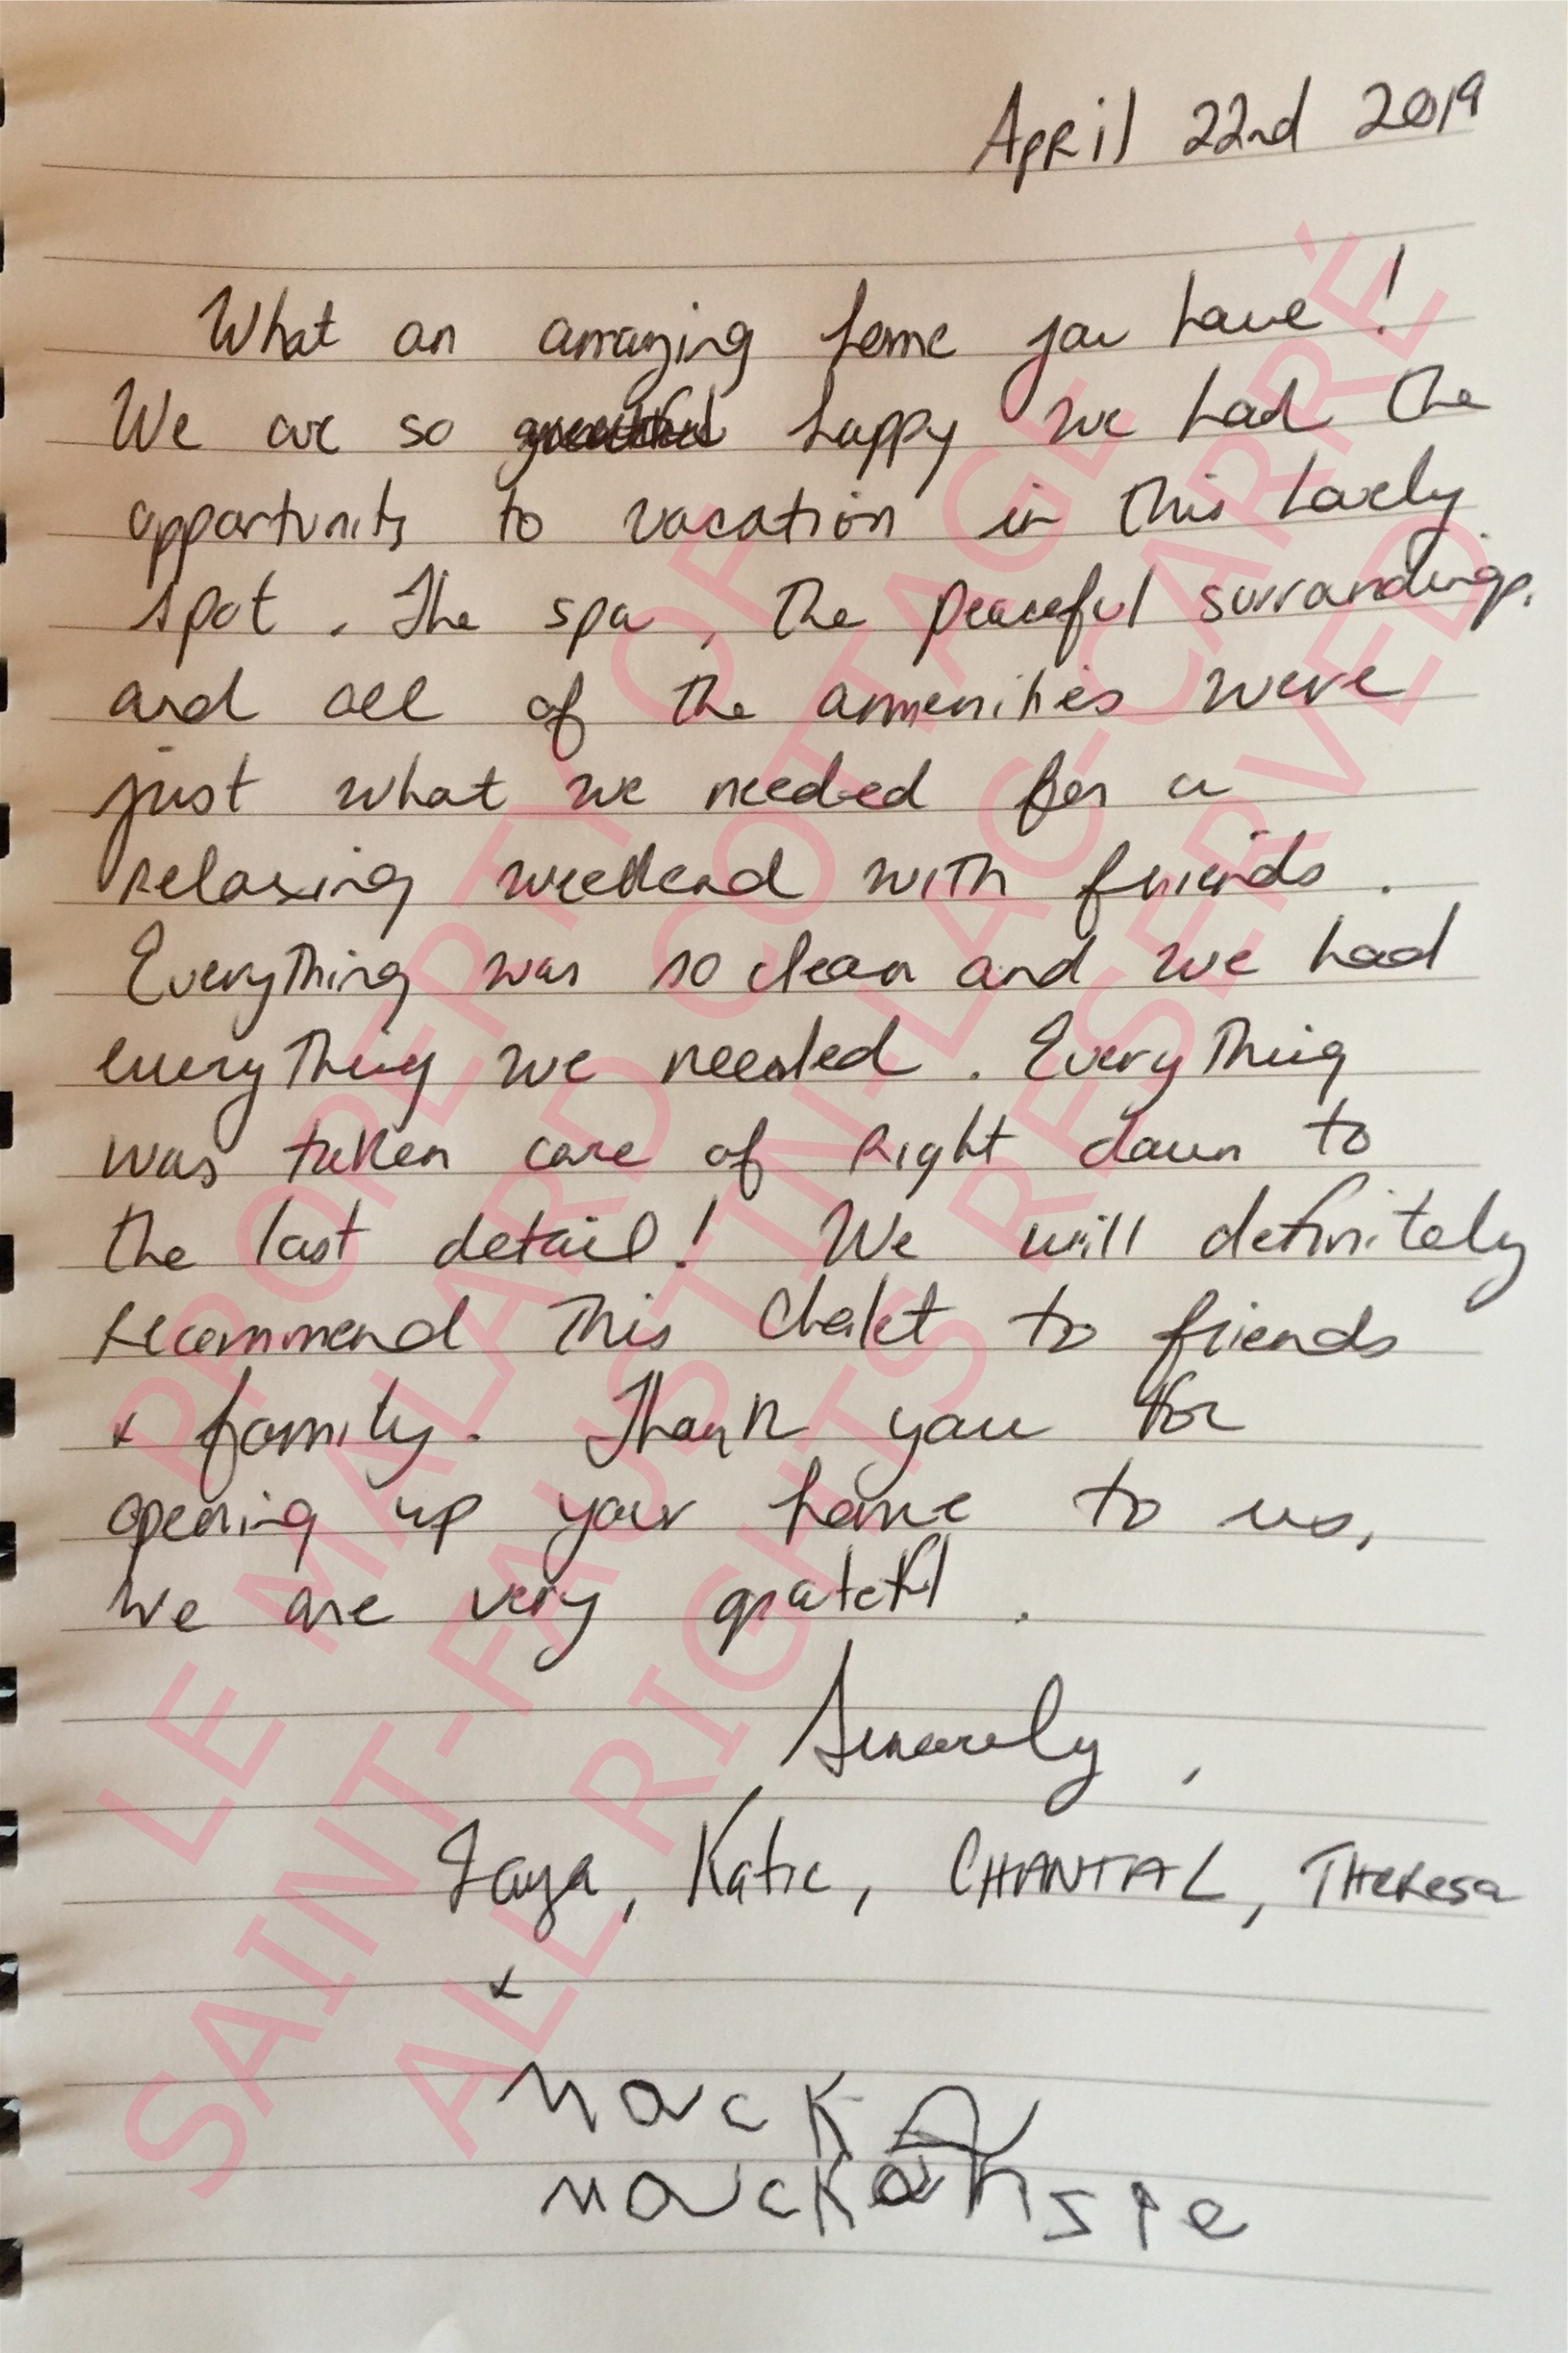 April 22nd 2019
What an amazing home you have!
We are so grateful happy we had the
opportunity to vacation in this lovely
spot. The spa, the peaceful surroundings,
and all of the ammenities were
just what we needed for a
relaxing weekend with friends.
Everything was so clean and we had
everything we needed. Everything
was taken care of right down to
the last detail! We will definitely
recommend this chalet to friends
& family. Thank you for
opening up your home to us,
we are very grateful.
Sincerely,
Katie, CHANTAL, Theresa
&
PROPERTY OF
LE MALARD COTTAGE
SAINT-FAUSTIN-LAC-CARRÉ
ALL RIGHTS RESERVED